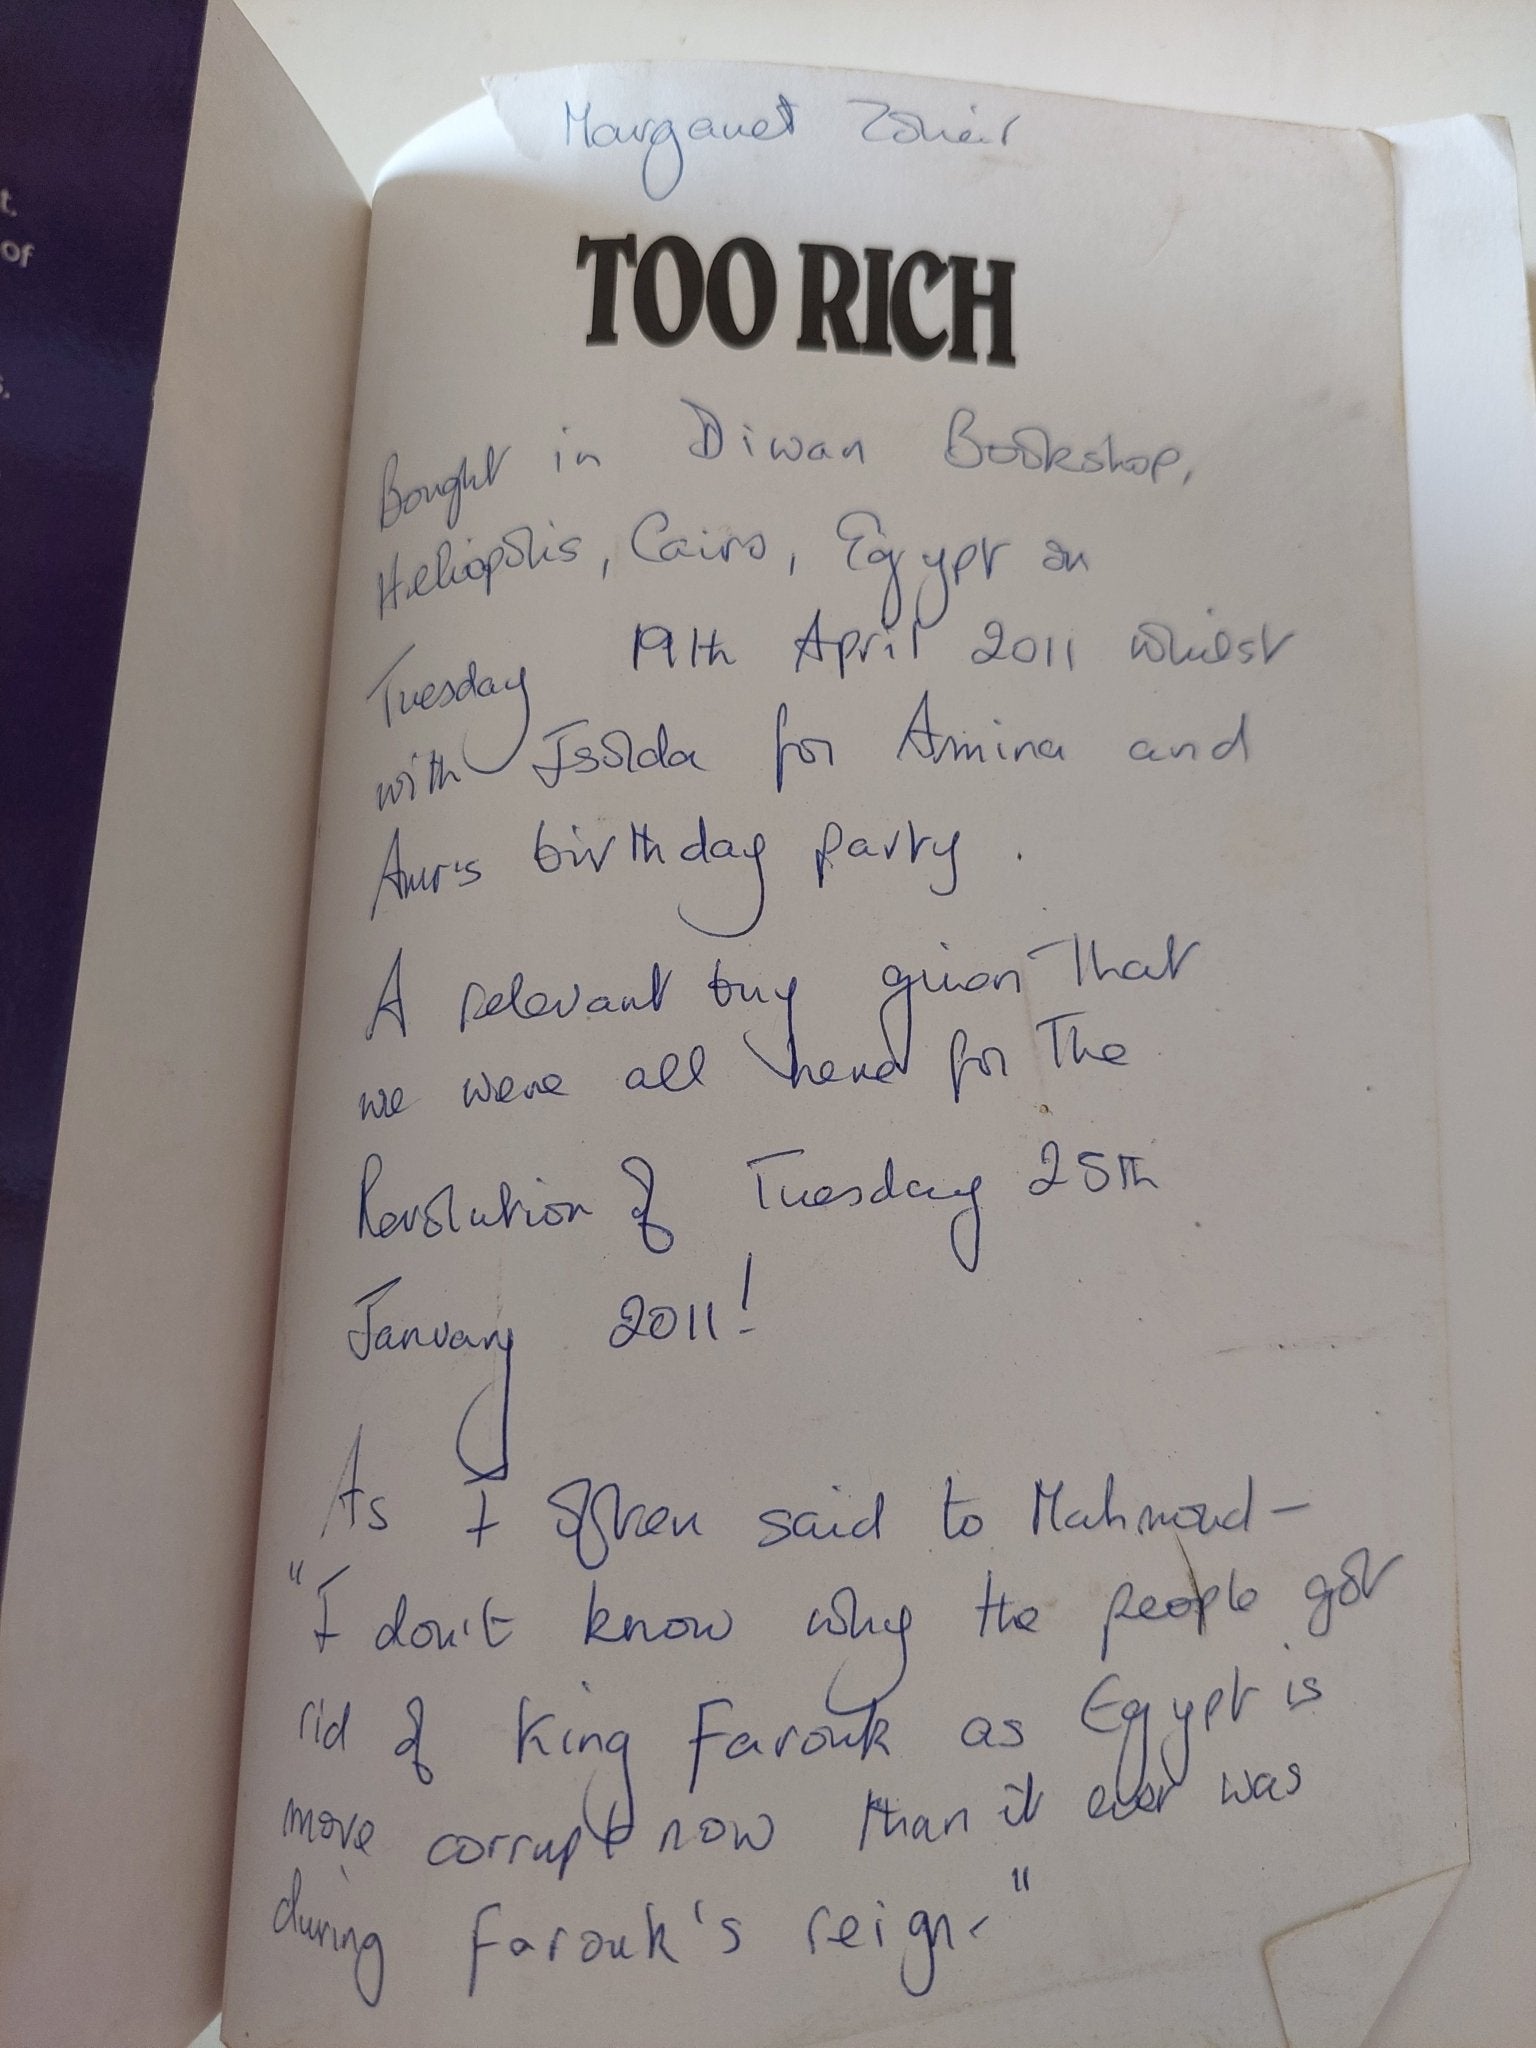 Margaret Zoheir
TOO RICH
Bought in Diwan Bookshop,
Heliopolis, Cairo, Egypt on
Tuesday 19th April 2011 whilst
with Isolda for Amina and
Amr's birthday party.
A relevant buy given that
we were all here for the
Revolution of Tuesday 25th
January 2011!
As I often said to Mahmoud –
"I don't know why the people got
rid of King Farouk as Egypt is
more corrupt now than it ever was
during Farouk's reign."
t.
of
s.